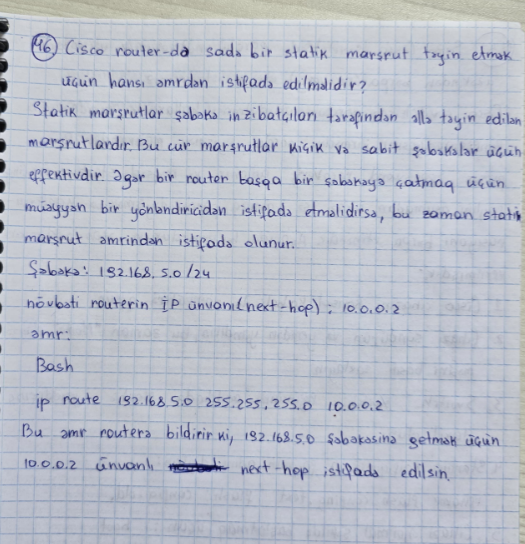 46 Cisco router-də sadə bir statik marşrut təyin etmək
üçün hansı əmrdən istifadə edilməlidir?
Statik marşrutlar şəbəkə inzibatçıları tərəfindən əllə təyin edilən
marşrutlardır. Bu cür marşrutlar kiçik və sabit şəbəkələr üçün
effektivdir. Əgər bir router başqa bir şəbəkəyə çatmaq üçün
müəyyən bir yönləndiricidən istifadə etməlidirsə, bu zaman statik
marşrut əmrindən istifadə olunur.
Şəbəkə: 192.168.5.0/24
növbəti routerin İP ünvanı(next-hop): 10.0.0.2
əmr:
Bash
ip route 192.168.5.0 255.255.255.0 10.0.0.2
Bu əmr routerə bildirir ki, 192.168.5.0 şəbəkəsinə getmək üçün
10.0.0.2 ünvanlı next-hop istifadə edilsin.